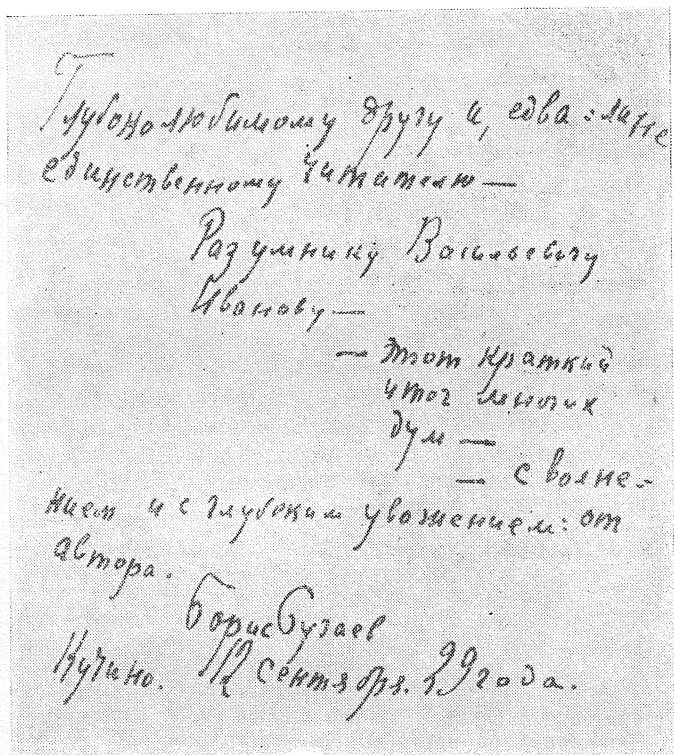 Глубоколюбимому другу и, едва-ли не
единственному читателю —
Разумнику Васильевичу
Иванову —
— этот краткий
итог многих
дум —
— с волне-
нием и с глубоким уважением: от
автора.
Борис Бугаев
Кучино. 12 сентября. 29 года.